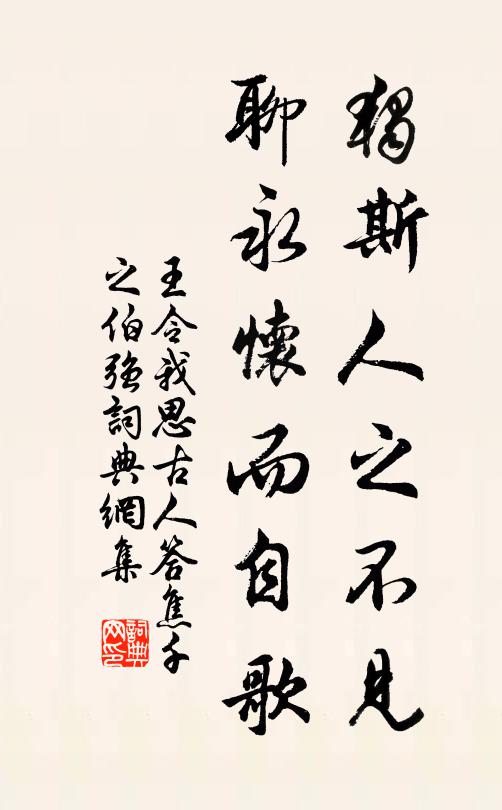 獨斯人之不見
聊永懷而自歌
王令我思古人答焦千
之伯強詞典網集
詞典網印